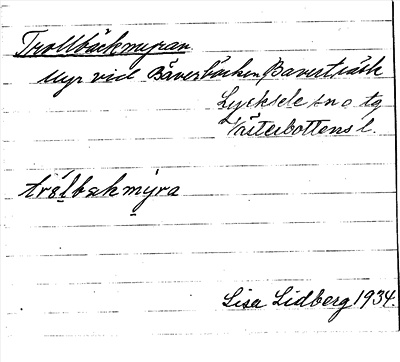 Trollbäckmyran
Myr vid Bäverbäcken, Bäverträsk
Lycksele sn o tg
Västerbottens l.
tro̤lbækmy̤ra
Lisa Lidberg 1934.